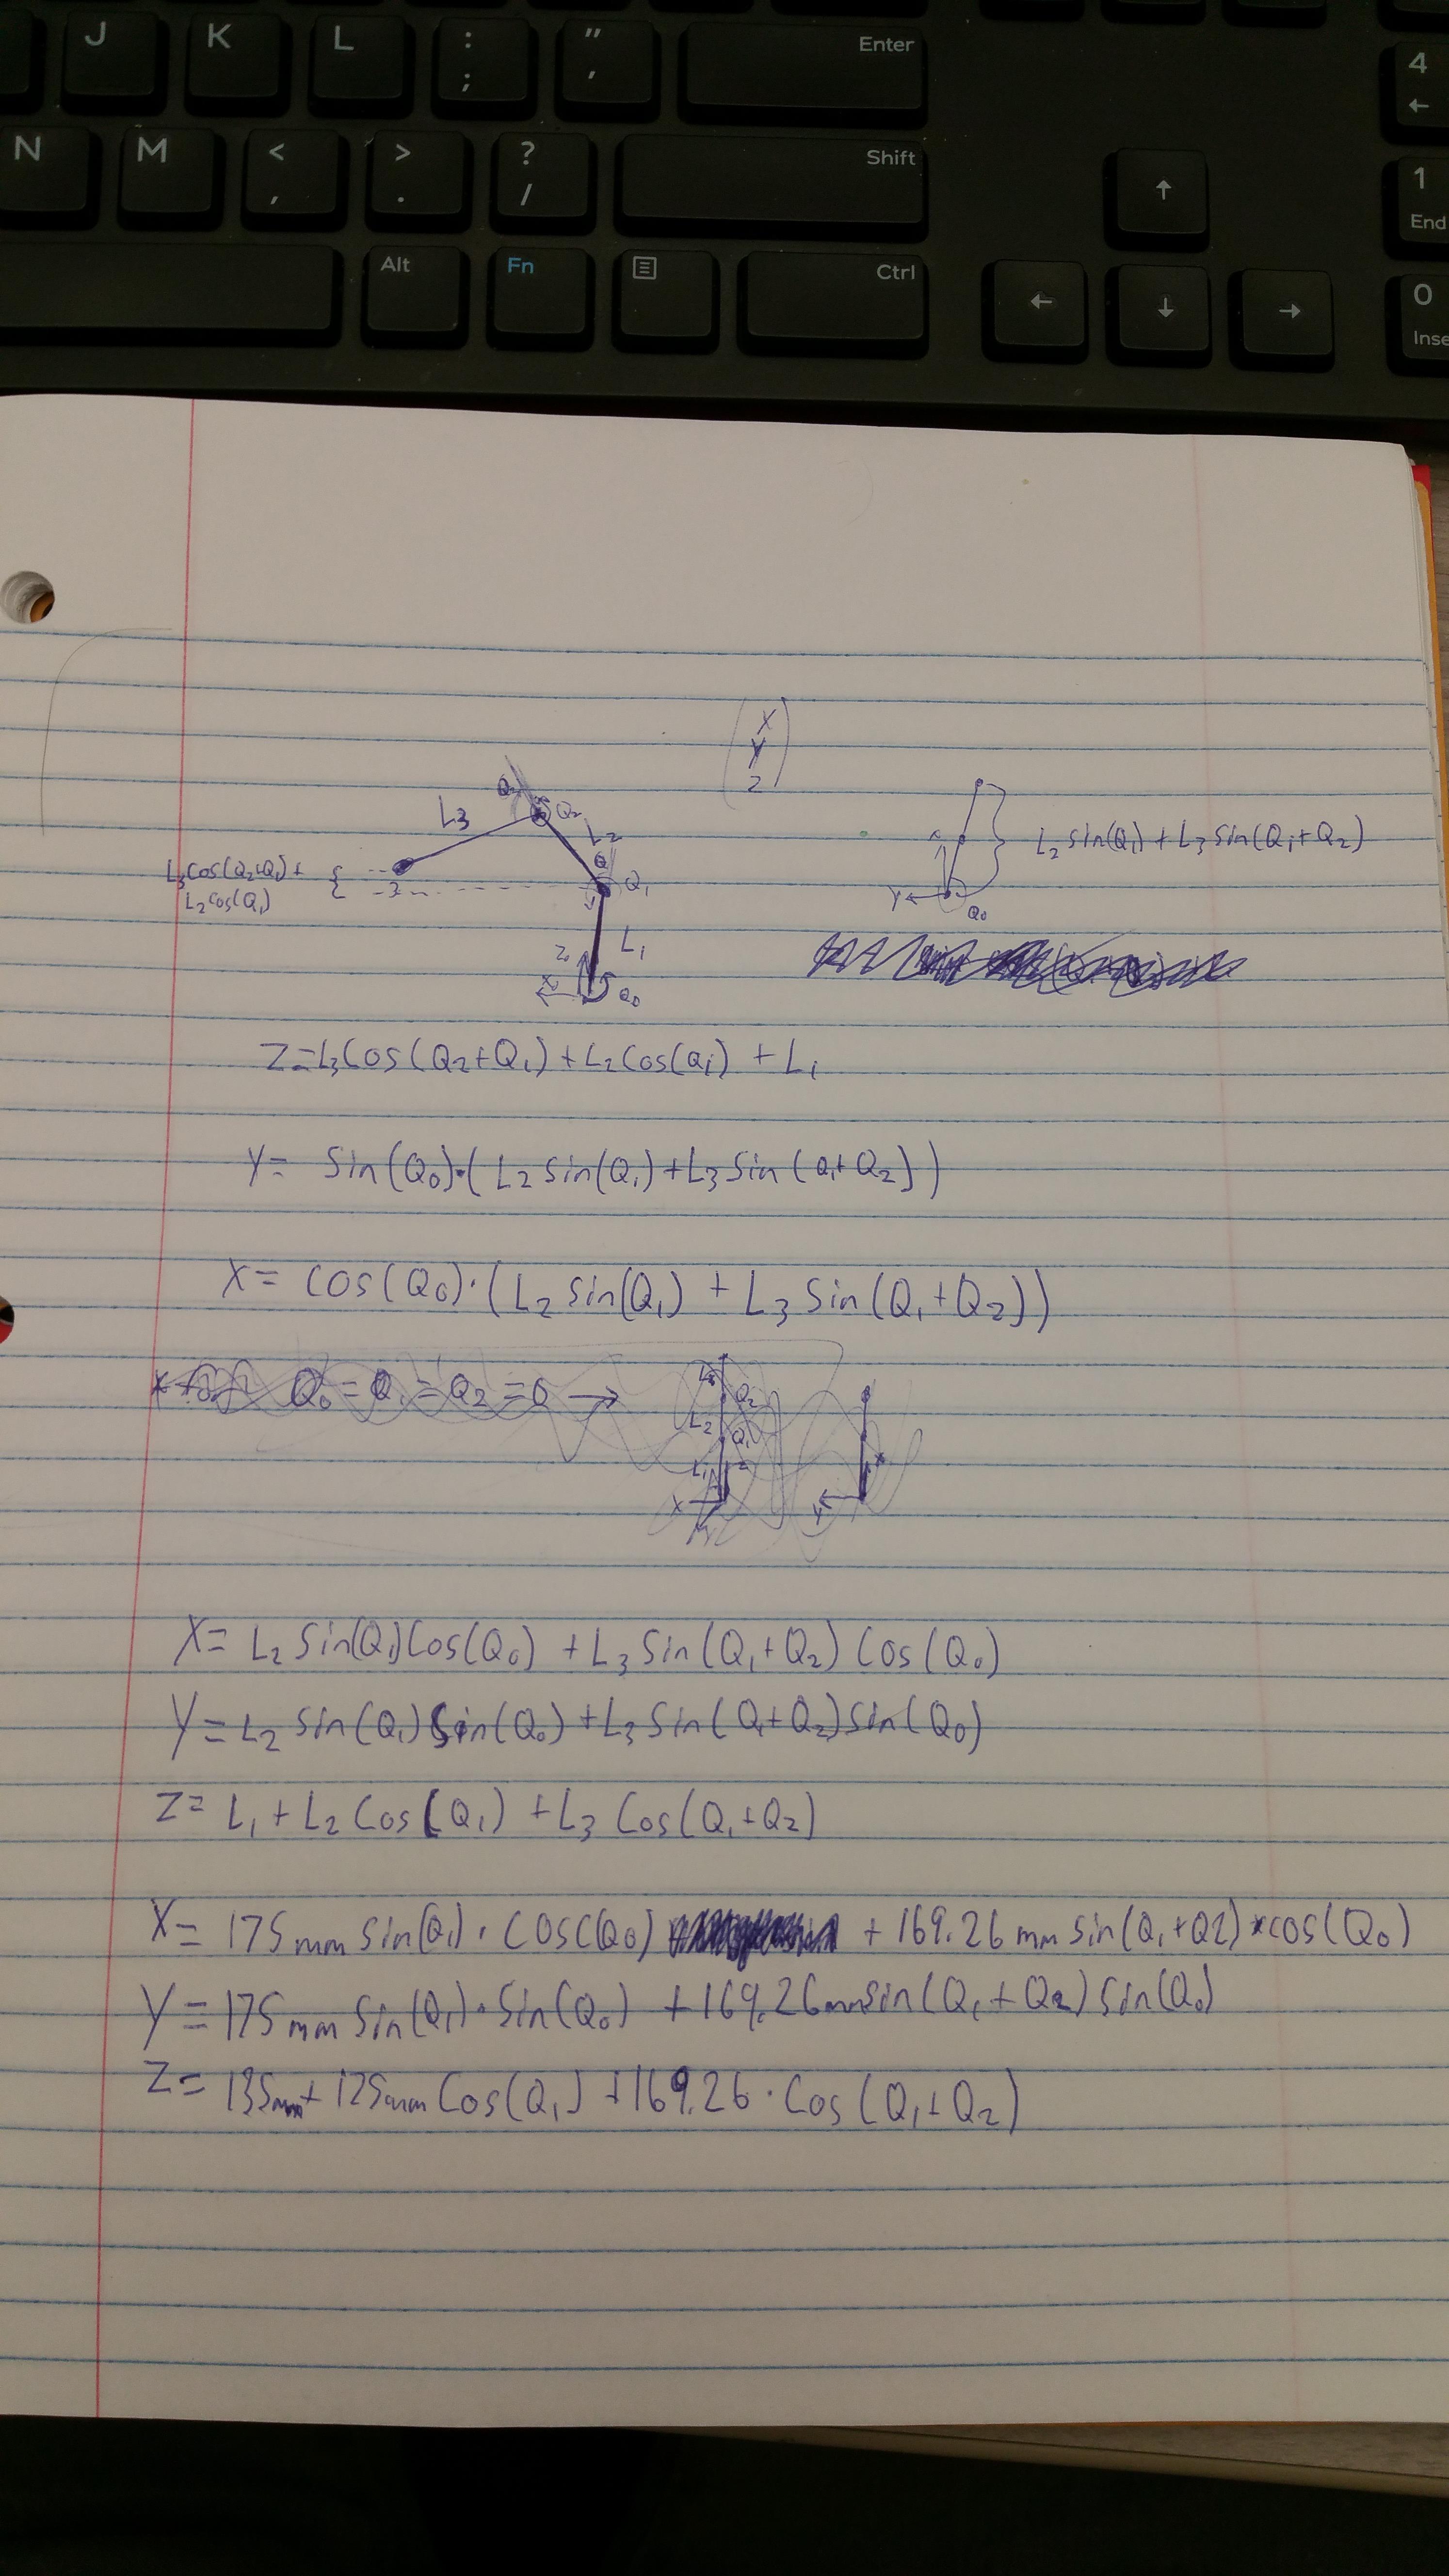 J K L : ; " ' Enter 4 ←
N M < , > . ? / Shift ↑ 1 End
Alt Fn Ctrl ← ↓ → 0 Inse
X
Y
Z
L3 Q2 L2
L3cos(Q2+Q1)+
L2cos(Q1)
Q1
L1
Z
X Q0
L2 sin(Q1) + L3 sin(Q1+Q2)
Y Q0
Z=L3Cos(Q2+Q1)+L2Cos(Q1) + L1
Y= Sin(Q0)·(L2 sin(Q1)+L3 Sin(Q1+Q2))
X= Cos(Q0)·(L2 sin(Q1) + L3 Sin(Q1+Q2))
Q0=Q1=Q2=0 →
Q2
L2 Q1
L1 Z
X Y X
X= L2 Sin(Q1)Cos(Q0) +L3 Sin(Q1+Q2) Cos(Q0)
Y=L2 sin(Q1) Sin(Q0) +L3 Sin(Q1+Q2)Sin(Q0)
Z= L1 + L2 Cos(Q1) +L3 Cos(Q1+Q2)
X= 175mm sin(Q1)·Cos(Q0) +169.26mm sin(Q1+Q2)*cos(Q0)
Y=175mm Sin(Q1)·Sin(Q0) +169.26mmsin(Q1+Q2) Sin(Q0)
Z= 135mm+175mm Cos(Q1) +169.26·Cos(Q1+Q2)